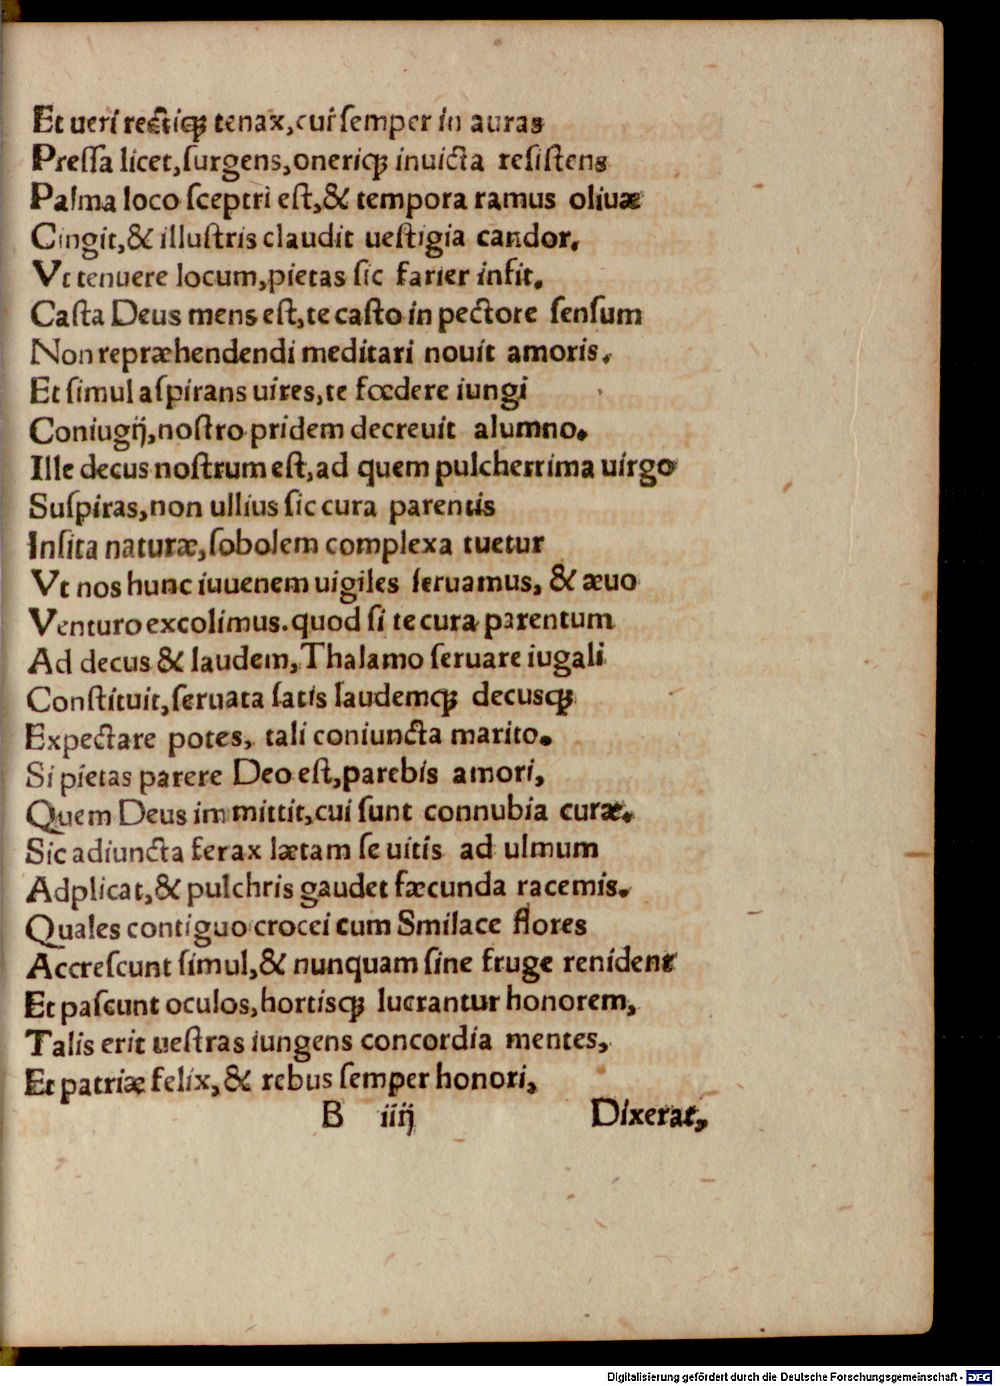 Et ueri rectiq́ꝫ tenax, cui ſemper in auras
Preſſa licet, ſurgens, oneriq́ꝫ inuicta reſiſtens
Palma loco ſceptri eſt, & tempora ramus oliuæ
Cingit, & illuſtris claudit ueſtigia candor.
Vt tenuere locum, pietas ſic farier infit.
Caſta Deus mens eſt, te caſto in pectore ſenſum
Non repræhendendi meditari nouit amoris.
Et ſimul aſpirans uires, te fœdere iungi
Coniugij, noſtro pridem decreuit alumno.
Ille decus noſtrum eſt, ad quem pulcherrima uirgo
Suſpiras, non ullius ſic cura parentis
Inſita naturæ, ſobolem complexa tuetur
Vt nos hunc iuuenem uigiles ſeruamus, & æuo
Venturo excolimus. quod ſi te cura parentum
Ad decus & laudem, Thalamo ſeruare iugali
Conſtituit, ſeruata ſatis laudemq́ꝫ decusq́ꝫ
Expectare potes, tali coniuncta marito.
Si pietas parere Deo eſt, parebis amori,
Quem Deus immittit, cui ſunt connubia curæ.
Sic adiuncta ferax lætam ſe uitis ad ulmum
Adplicat, & pulchris gaudet fæcunda racemis.
Quales contiguo crocei cum Smilace flores
Accreſcunt ſimul, & nunquam ſine fruge renident
Et paſcunt oculos, hortisq́ꝫ lucrantur honorem,
Talis erit ueſtras iungens concordia mentes,
Et patriæ felix, & rebus ſemper honori,
B iiij Dixerat,
Digitalisierung gefördert durch die Deutsche Forschungsgemeinschaft - DFG